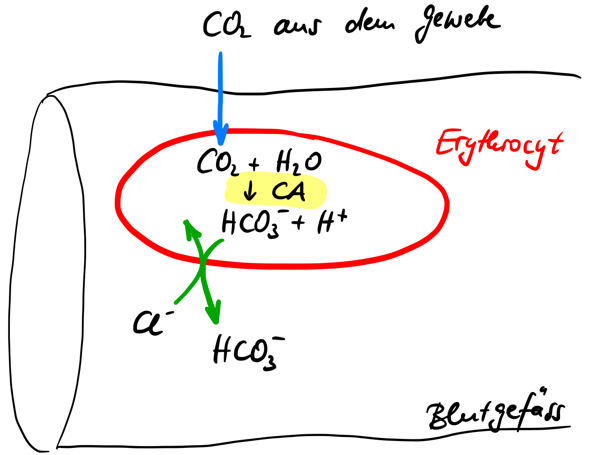 CO₂ aus dem Gewebe
Erythrocyt
CO₂ + H₂O
↓ CA
HCO₃⁻ + H⁺
Cl⁻
HCO₃⁻
Blutgefäss